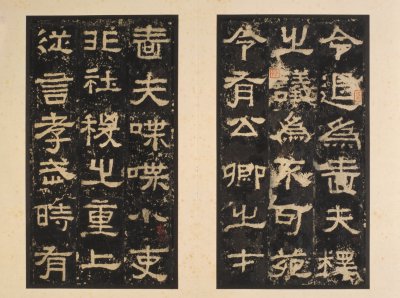 令退為嗇夫檡
之議為不可苑
令有公卿之才
嗇夫喋喋小吏
非社稷之重上
從言孝武時有